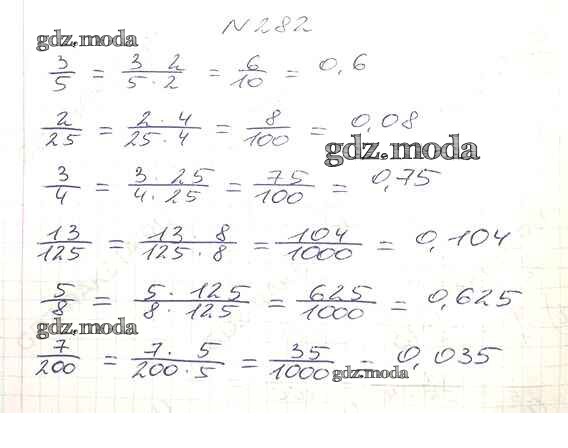 N 282
gdz.moda
3/5 = 3 2/5 · 2 = 6/10 = 0,6
2/25 = 2 · 4/25 · 4 = 8/100 = 0,08
gdz.moda
3/4 = 3 · 25/4 · 25 = 75/100 = 0,75
13/125 = 13 · 8/125 · 8 = 104/1000 = 0,104
5/8 = 5 · 125/8 · 125 = 625/1000 = 0,625
gdz.moda
7/200 = 7 · 5/200 · 5 = 35/1000 = 0,035
gdz.moda